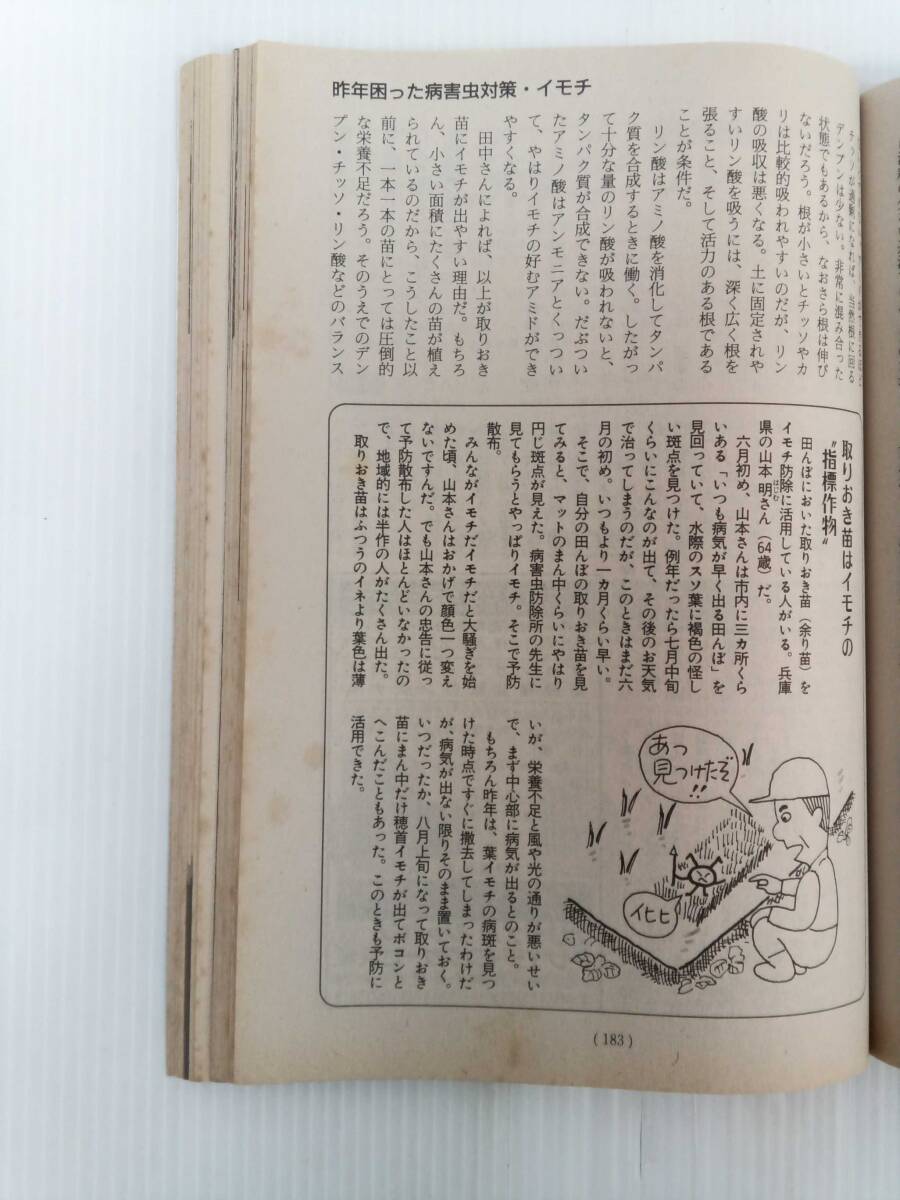 昨年困った病害虫対策・イモチ
デンプンは少ない。非常に混み合った
状態でもあるから、なおさら根は伸び
ないだろう。根が小さいとチッソやカ
リは比較的吸われやすいのだが、リン
酸の吸収は悪くなる。土に固定されや
すいリン酸を吸うには、深く広く根を
張ること、そして活力のある根である
ことが条件だ。
リン酸はアミノ酸を消化してタンパ
ク質を合成するときに働く。したがっ
て十分な量のリン酸が吸われないと、
タンパク質が合成できない。だぶつい
たアミノ酸はアンモニアとくっつい
て、やはりイモチの好むアミドができ
やすくなる。
田中さんによれば、以上が取りおき
苗にイモチが出やすい理由だ。もちろ
ん、小さい面積にたくさんの苗が植え
られているのだから、こうしたこと以
前に、一本一本の苗にとっては圧倒的
な栄養不足だろう。そのうえでのデン
プン・チッソ・リン酸などのバランス
取りおき苗はイモチの
〝指標作物〟
田んぼにおいた取りおき苗（余り苗）を
イモチ防除に活用している人がいる。兵庫
県の山本明さん（64歳）だ。
はじむ
六月初め、山本さんは市内に三カ所くら
いある「いつも病気が早く出る田んぼ」を
見回っていて、水際のスソ葉に褐色の怪し
い斑点を見つけた。例年だったら七月中旬
くらいにこんなのが出て、その後のお天気
で治ってしまうのだが、このときはまだ六
月の初め。いつもより一カ月くらい早い。
そこで、自分の田んぼの取りおき苗を見
てみると、マットのまん中くらいにやはり
円じ斑点が見えた。病害虫防除所の先生に
見てもらうとやっぱりイモチ。そこで予防
散布。
みんながイモチだイモチだと大騒ぎを始
めた頃、山本さんはおかげで顔色一つ変え
ないですんだ。でも山本さんの忠告に従っ
て予防散布した人はほとんどいなかったの
で、地域的には半作の人がたくさん出た。
取りおき苗はふつうのイネより葉色は薄
いが、栄養不足と風や光の通りが悪いせい
で、まず中心部に病気が出るとのこと。
もちろん昨年は、葉イモチの病斑を見つ
けた時点ですぐに撤去してしまったわけだ
が、病気が出ない限りそのまま置いておく。
いつだったか、八月上旬になって取りおき
苗にまん中だけ穂首イモチが出てボコンと
へこんだこともあった。このときも予防に
活用できた。
あっ
見つけたぞ
!!
イヒヒ
(183)